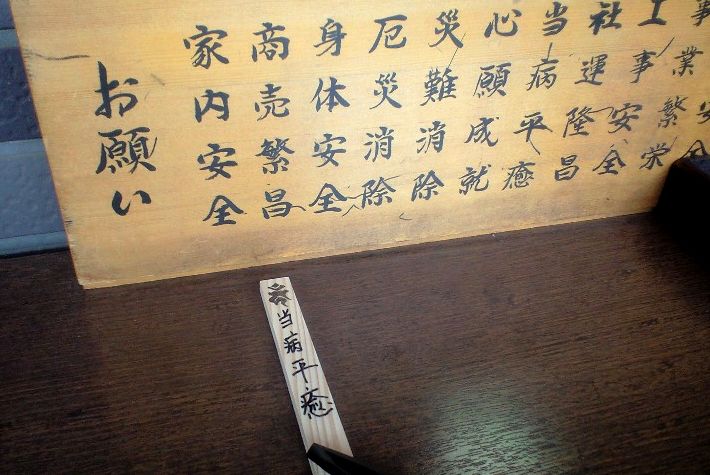 安全
事業繁栄
工事安全
社運隆昌
当病平癒
心願成就
災難消除
厄災消除
身体安全
商売繁昌
家内安全
お願い
当病平癒